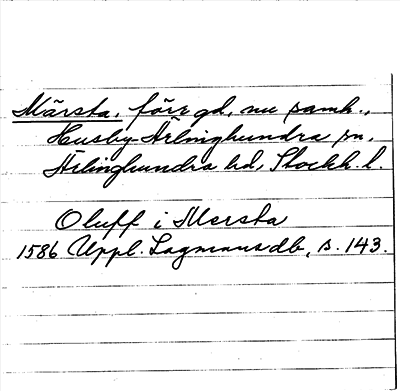 Märsta, förr gd, nu samh.,
Husby-Ärlinghundra sn,
Ärlinghundra hd, Stockh. l.
Oluff i Mersta
1586 Uppl. Lagmansdb, s. 143.